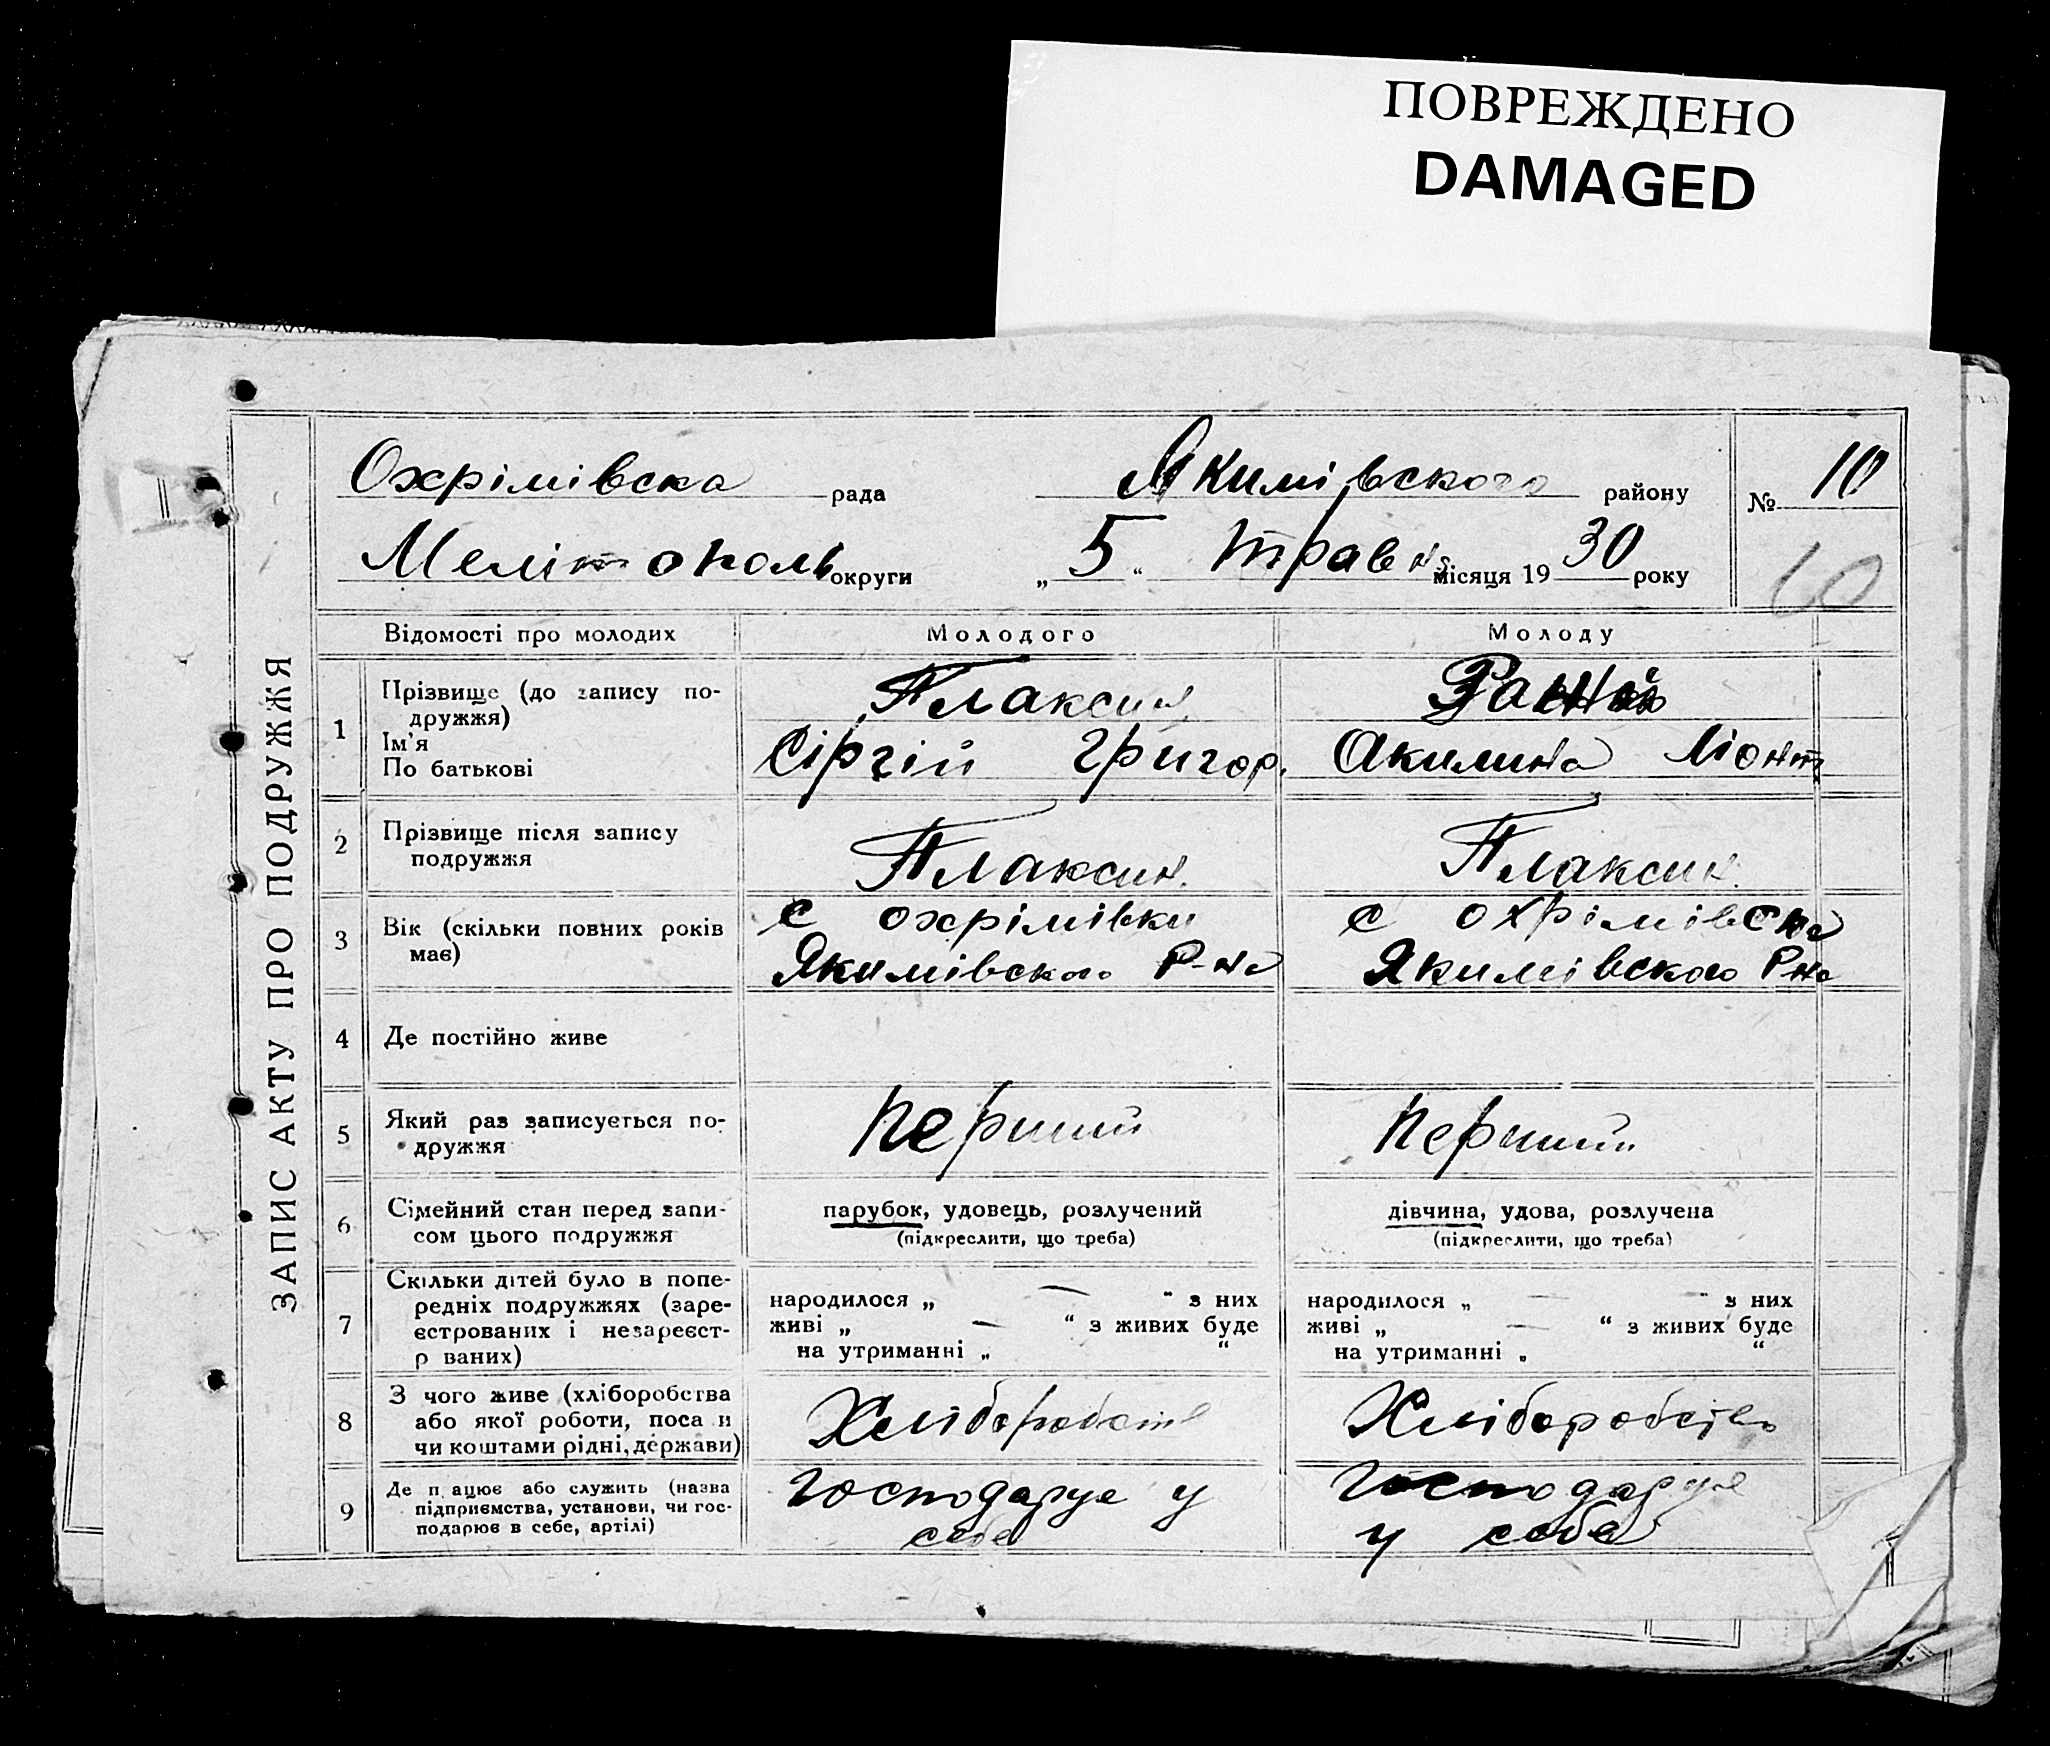 ПОВРЕЖДЕНО
DAMAGED
ЗАПИС АКТУ ПРО ПОДРУЖЖЯ
Охрімівска рада Якимівского району № 10
Мелітополь округи „ 5 “ травня місяця 19 30 року
10
Відомості про молодих Молодого Молоду
1 Прізвище (до запису по-
дружжя)
Ім'я
По батькові
Плаксин
Сіргій Григор. Акилина Ліонт
2 Прізвище після запису
подружжя
Плаксин. Плаксин.
3 Вік (скільки повних років
має)
с охрімівки
Якимівского Р-на
с охрімівска
Якимівского Рна
4 Де постійно живе
5 Який раз записується по-
дружжя
перший перший
6 Сімейний стан перед запи-
сом цього подружжя
парубок, удовець, розлучений
(підкреслити, що треба)
дівчина, удова, розлучена
(підкреслити, що треба)
7 Скільки дітей було в попе-
редніх подружжях (заре-
єстрованих і незареєст-
р ваних)
народилося „ — “ з них
живі „ — “ з живих буде
на утриманні „ “
народилося „ — “ з них
живі „ — “ з живих буде
на утриманні „ “
8 З чого живе (хліборобства
або якої роботи, поса и
чи коштами рідні, держави)
Хліборобств Хліборобство
9 Де п ацює або служить (назва
підприємства, установи, чи гос-
подарює в себе, артілі)
Господарує у
себе
Господарує
у себе